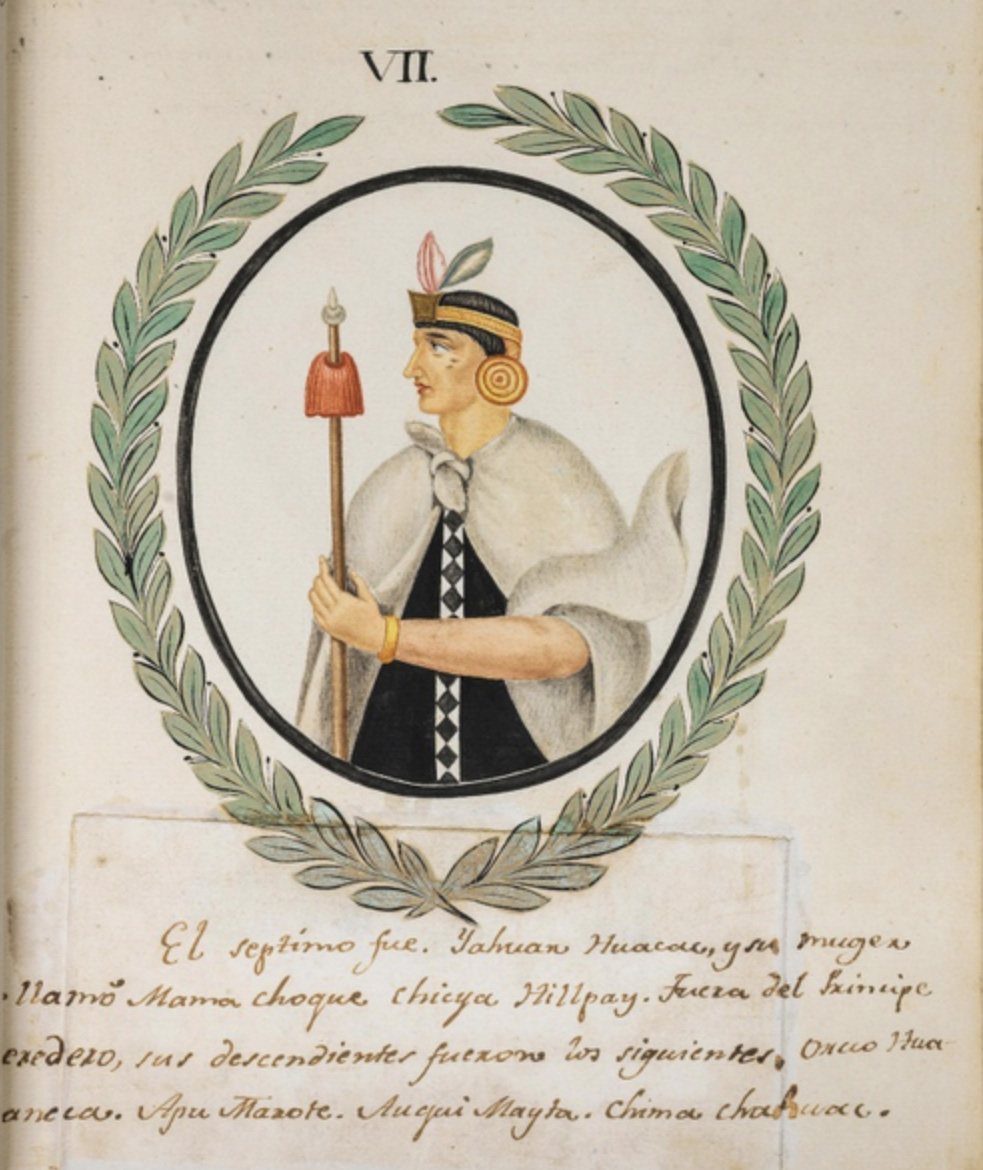 VII.
El septimo fue. Yahuar Huacac, y su muger
llamó Mama choque chicya Hillpay. Fuera del Principe
eredero, sus descendientes fueron los siguientes. Orco Hua-
aneca. Apu Marote. Auqui Mayta. Chima chahuac.